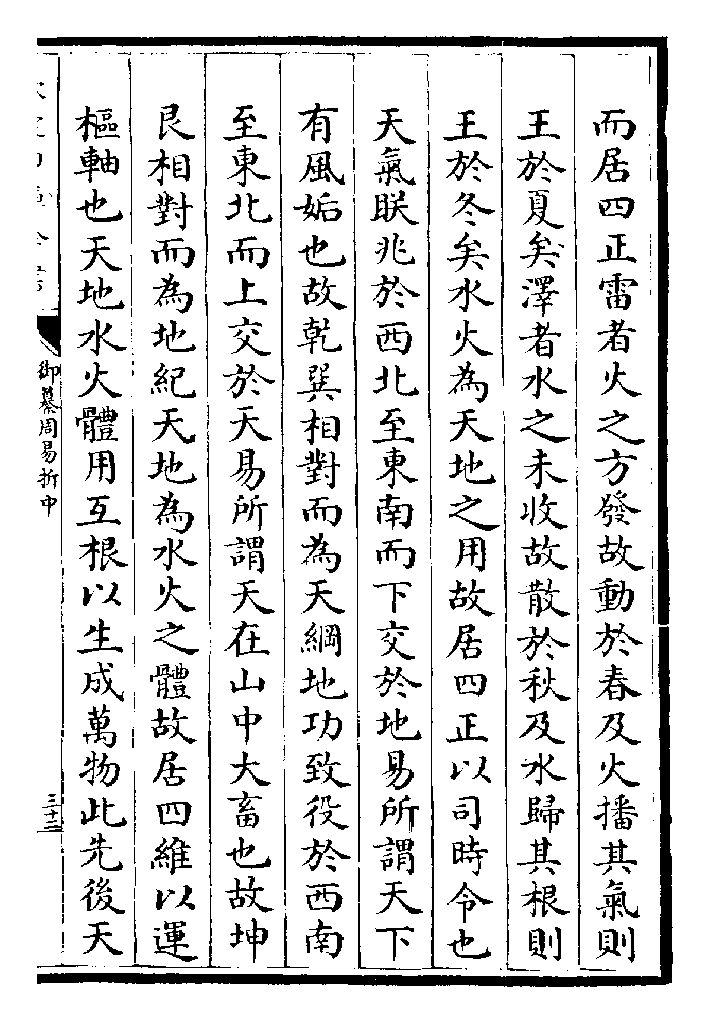 而居四正雷者火之方發故動於春及火播其氣則
王於夏矣澤者水之未收故散於秋及水歸其根則
王於冬矣水火為天地之用故居四正以司時令也
天氣眹兆於西北至東南而下交於地易所謂天下
有風姤也故乾巽相對而為天綱地功致役於西南
至東北而上交於天易所謂天在山中大畜也故坤
艮相對而為地紀天地為水火之體故居四維以運
樞軸也天地水火體用互根以生成萬物此先後天
御纂周易折中
三十三